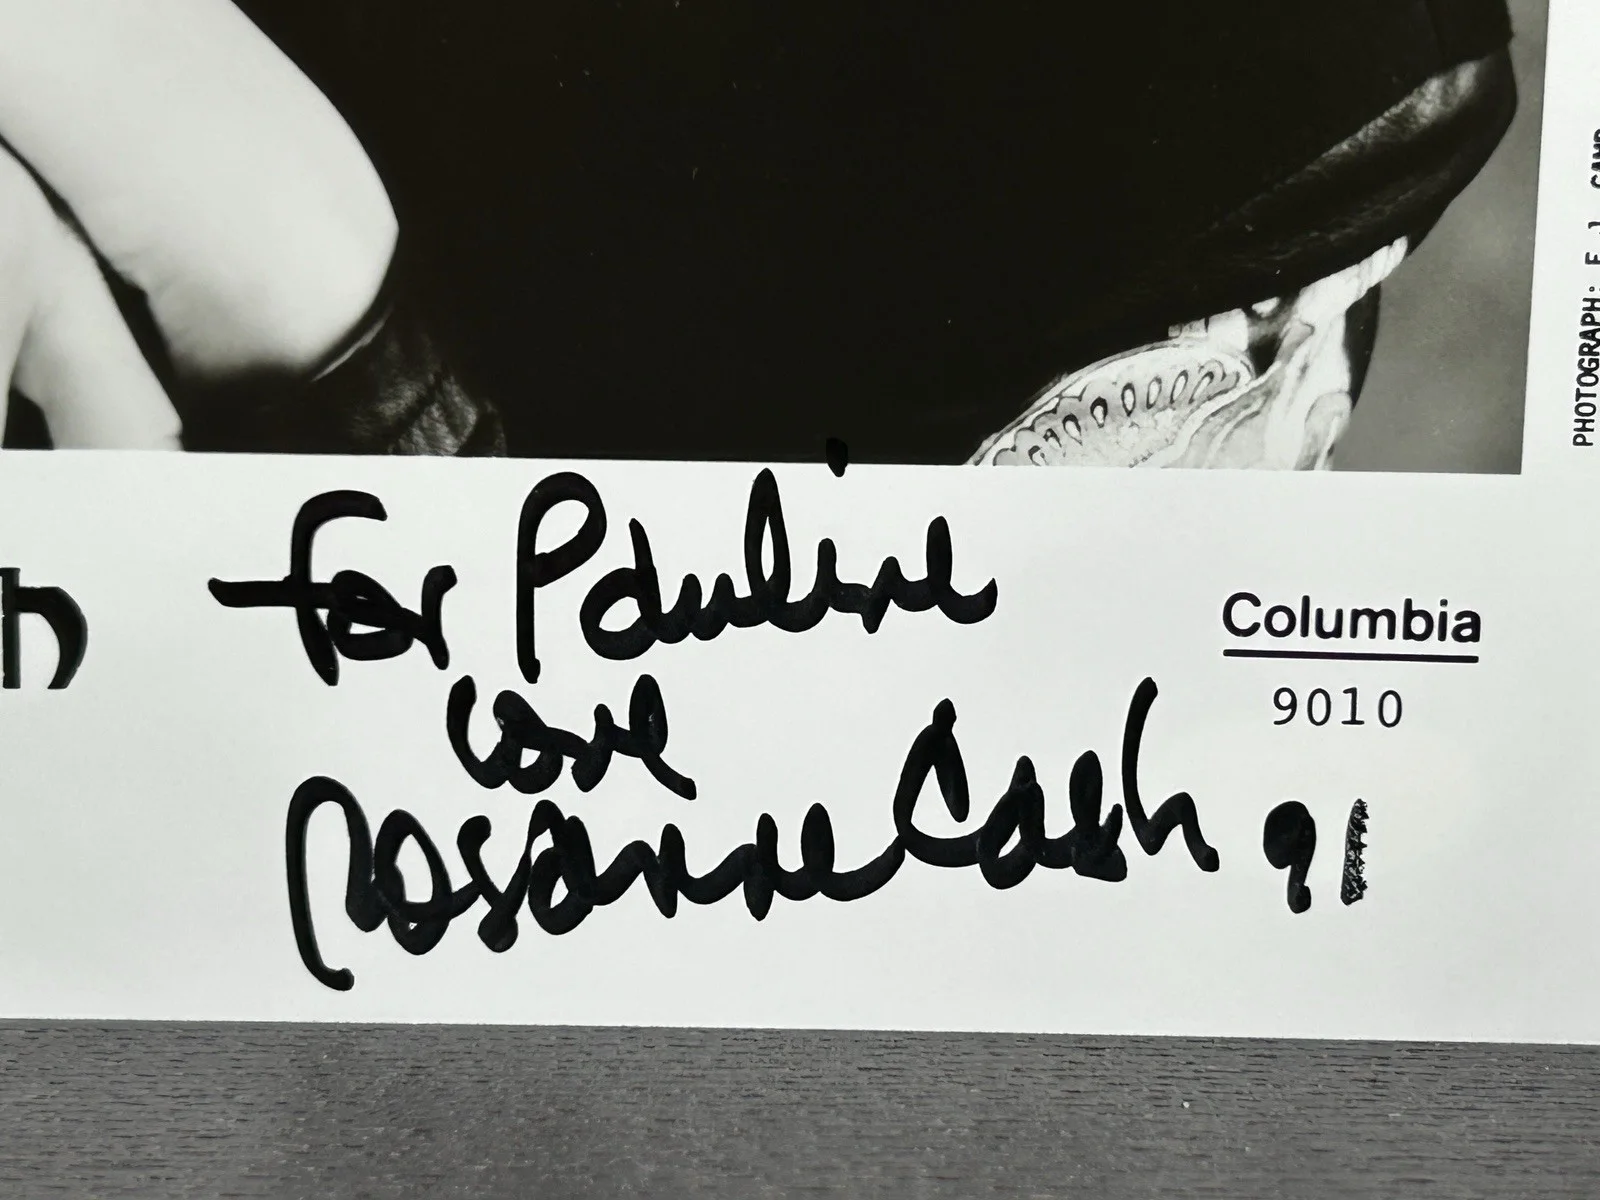 h
For Pauline
love
Rosanne Cash 91
Columbia
9010
PHOTOGRAPH: E.J. CAMP